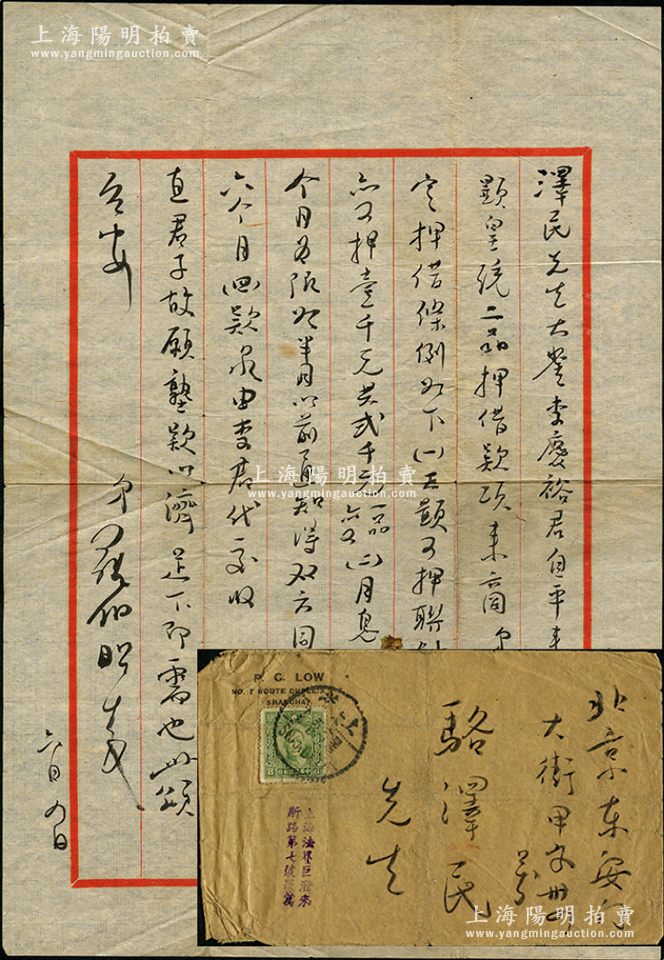 上海陽明拍賣
www.yangmingauction.com
澤民先生大鑒李慶裕君自平來
顥皇統二品押借款項來商
定押借條例如下(一)王顥可押聯
品可押壹千元共弍千元(二)月息
個月為限如半月以前通知得双方同
六個月(四)款只由李君代交收
直君子故願墊款以濟足下即需也此頌
台安
弟羅伯昭
六月四日
上海陽明拍賣
www.yangmingauction.com
P. C. LOW
NO. 7 ROUTE DUPLEIX
SHANGHAI
上海法界巨潑來
斯路第七號羅寓
北京東安
大街甲
駱澤民
先生
上海陽明拍賣
www.yangmingauction.com